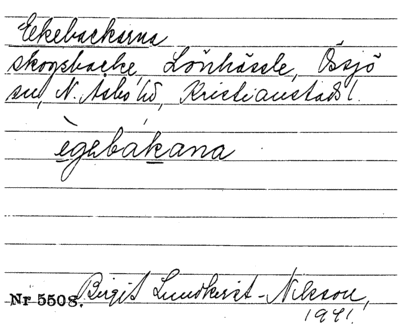 Ekebackarna
skogsbacke, Lönhässle, Össjö
sn, N. Åsbo hd, Kristianstads l.
ègəbákana
Nr 5508. Birgit Lundkvist-Nilsson,
1941.